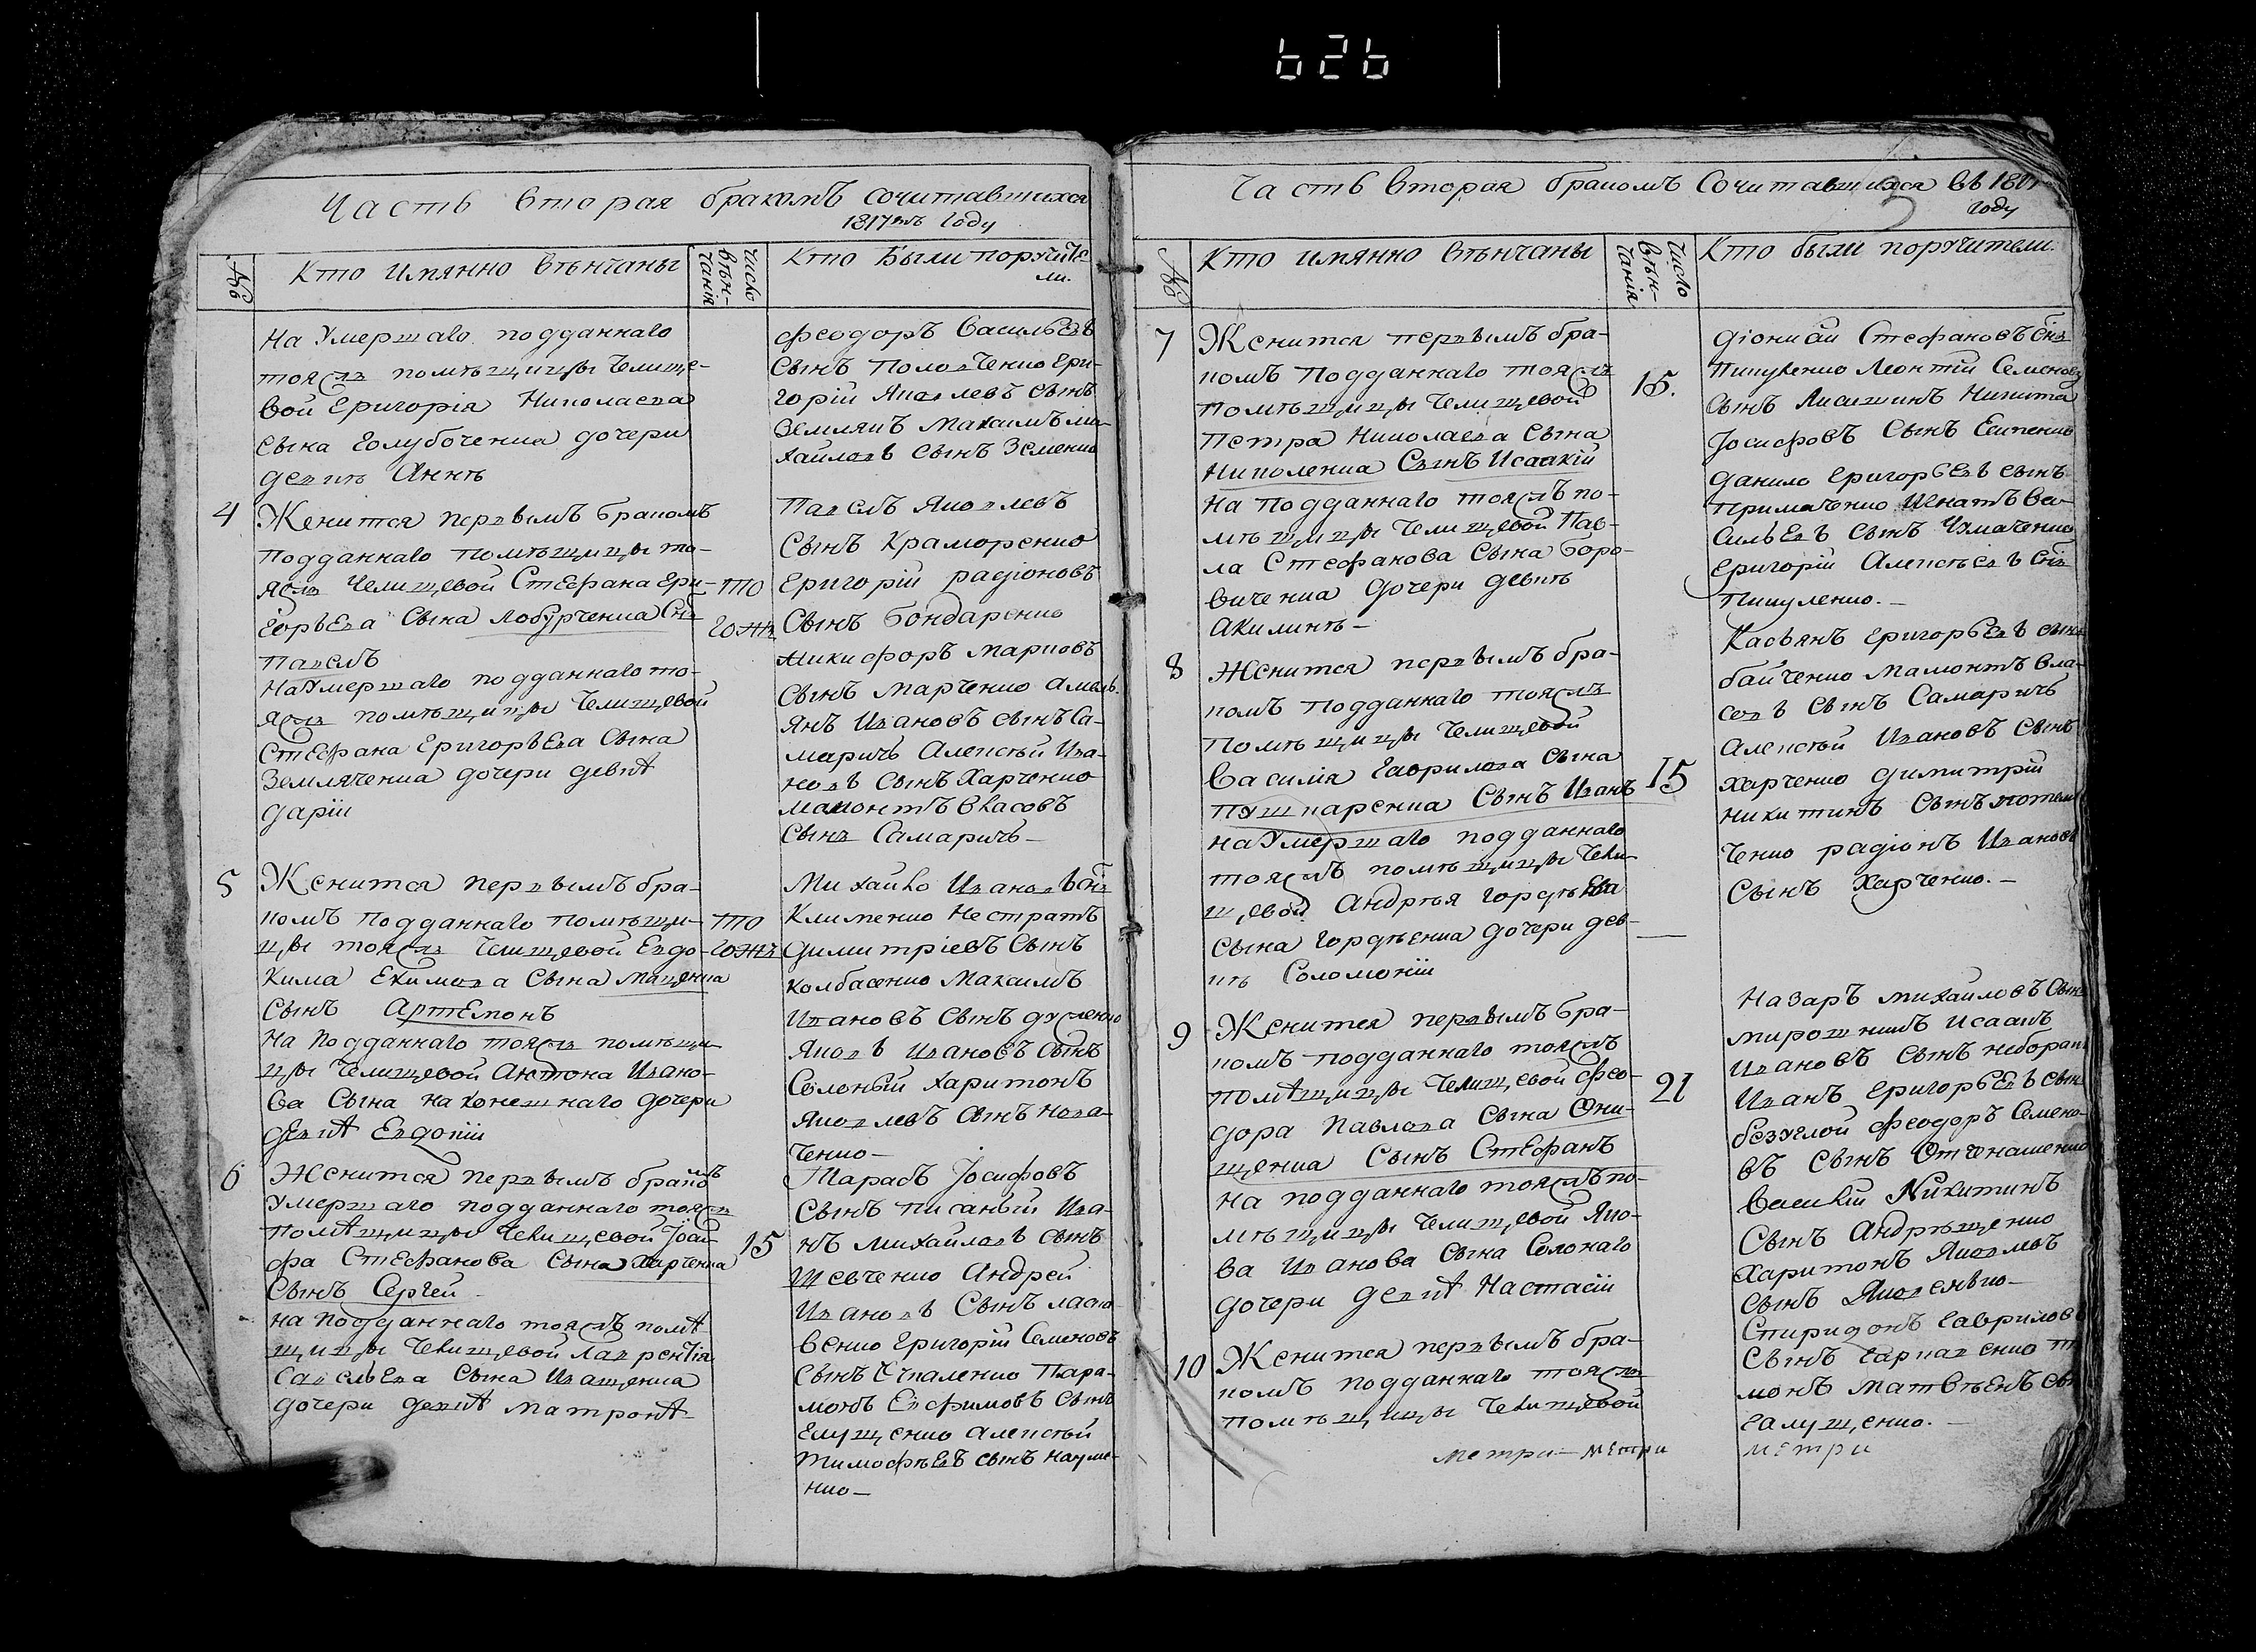 626
Часть вторая бракомъ сочитавшихся
1817мъ году
№
Кто имянно венчаны
число
вѣн-
чанія
Кто были поручите-
ли.
на умершаго подданнаго
тояжъ помѣщицы Челище-
вой Григорія Николаева
сына Голубоченка дочери
девкѣ Аннѣ
Феодоръ Васильевъ
сынъ Гри-
горій Яковлевъ сынъ
Землянъ Максимъ Ми-
хайловъ сынъ Земенко
4
Женится первымъ бракомъ
подданнаго помѣщицы то-
яжъ Челищевой Стефана Гри-
горьева сына Лобурченка снъ
Павелъ
на умершаго подданнаго то-
яжъ помѣщицы Челищевой
Стефана Григорьева сына
Землячения дочери девкѣ
Даріи
то
гожъ
Павелъ Яковлевъ
сынъ Краморенко
Григорій Радіоновъ
сынъ Бондаренко
Никифоръ Марковъ
сынъ Марченко Амель-
янъ Ивановъ сынъ Са-
маричъ Алексѣй Ива-
новъ сынъ Харченко
Мамонтъ Власовъ
сынъ Самаричъ
5
Женится первымъ бра-
комъ подданнаго помѣщи-
цы тояжъ Челищевой Евдо-
кима Екимова сына Маценка
сынъ Артемонъ
на подданнаго тояжъ помѣщи-
цы Челищевой Антона Ивано-
ва сына Наконешнаго дочери
девкѣ Евдокіи
то
гожъ
Михайло Ивановъ снъ
Клименко Нестратъ
Димитріевъ сынъ
Колбасенко Максимъ
Ивановъ сынъ
Яковъ Ивановъ сынъ
Солоный Харитонъ
Яковлевъ сынъ Нова-
ченко
6
Женится первымъ бракомъ
умершаго подданнаго тояжъ
помѣщицы Челищевой Іоси-
фа Стефанова сына Харченка
сынъ Сергей
на подданнаго тояжъ помѣ-
щицы Челищевой Лаврентія
Савельева сына Иващенка
дочери девкѣ Матронѣ
15
Тарасъ Іосифовъ
сынъ Писаный Ива-
нъ Михайловъ сынъ
Шевченко Андрей
Ивановъ сынъ
Григорій Семеновъ
сынъ Пара-
монъ Евфимовъ сынъ
Глущенко Алексѣй
Тимофѣевъ сынъ Науме-
нко
Часть вторая бракомъ сочитавшихся въ
году
№
Кто имянно вѣнчаны
число
вѣн-
чанія
Кто были поручители
7
Женится первымъ бра-
комъ подданнаго тояжъ
помѣщицы Челищевой
Петра Николаева сына
Николенка сынъ Исаакій
на подданнаго тояжъ по-
мѣщицы Челищевой Пав-
ла Стефанова сына Боро-
виченка дочери девкѣ
Акилинѣ
15.
Діонисій Стефановъ снъ
Пикуленко Леонтій Семеновъ
сынъ Никита
Іосифовъ сынъ Есипенко
Данило Григорьевъ сынъ
Примаченко Игнатъ Ва-
сильевъ сынъ Чумаченко
Григорій Алексѣевъ снъ
Пикуленко.
8
Женится первымъ бра-
комъ подданнаго тояжъ
помѣщицы Челищевой
Василія Гаврилова сына
Пушкаренка сынъ Иванъ
на умершаго подданнаго
тояжъ помѣщицы Чели-
щевой Андрѣя Гордѣева
сына Гордѣенка дочери дев-
кѣ Соломоніи
15
Касьянъ Григорьевъ сынъ
Байченко Мамонтъ Вла-
совъ сынъ Самаричъ
Алексѣй Ивановъ сынъ
Харченко Димитрій
Никитинъ сынъ Потем-
ченко Радіонъ Ивановъ
сынъ Харченко.
9
Женится первымъ бра-
комъ подданнаго тояжъ
помѣщицы Челищевой Фео-
дора Павлова сына Они-
щенка сынъ Стефанъ
на подданнаго тояжъ по-
мѣщицы Челищевой Яко-
ва Иванова сына Солонаго
дочери девкѣ Настасіи
21
Назаръ Михайловъ сынъ
Мирошникъ Исаакъ
Ивановъ сынъ
Иванъ Григорьевъ сынъ
Безуглой Феодоръ Семено-
въ сынъ Отченашенко
Василій Никитинъ
сынъ Андрѣщенко
Харитонъ Яковлевъ
сынъ Яковенько
10
Женится первымъ бра-
комъ подданнаго тояжъ
помѣщицы Челищевой
Спиридонъ Гавриловъ
сынъ
монъ Матвѣевъ сы
Галущенко.
метри- метри
метри